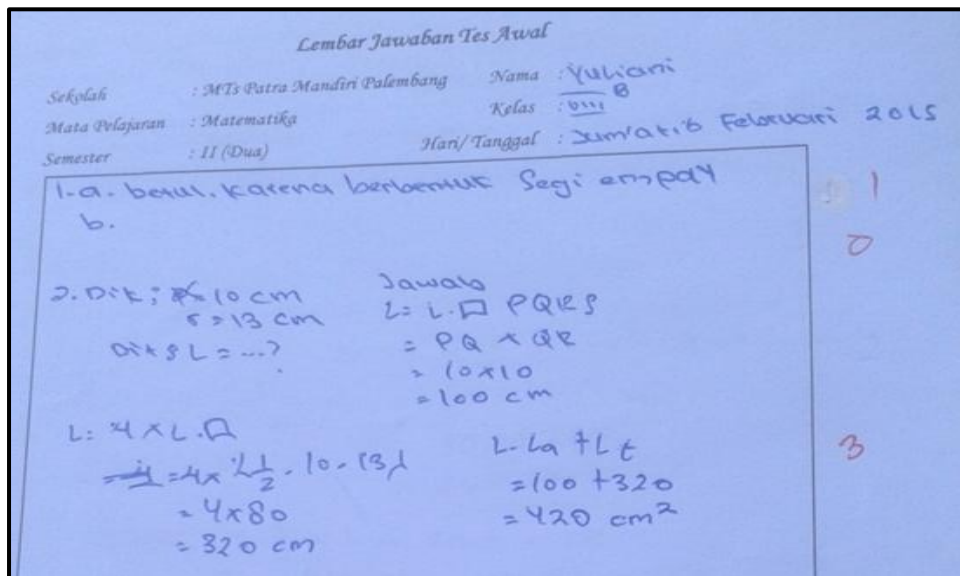 Lembar Jawaban Tes Awal
Sekolah : MTs Patra Mandiri Palembang Nama : Yuliani
Mata Pelajaran : Matematika Kelas : VIII B
Semester : II (Dua) Hari/Tanggal : Jum'at 6 Februari 2015
1. a. betul. karena berbentuk Segi empay
b.
1
0
2. Dik : 10 cm
s = 13 cm
Dit : L = ...?
Jawab
L = L.□ PQRS
= PQ x QR
= 10x10
= 100 cm
L = 4 x L.□
= 4x 1/2 . 10 . 13
= 4x80
= 320 cm
L. La + Lt
= 100 + 320
= 420 cm²
3